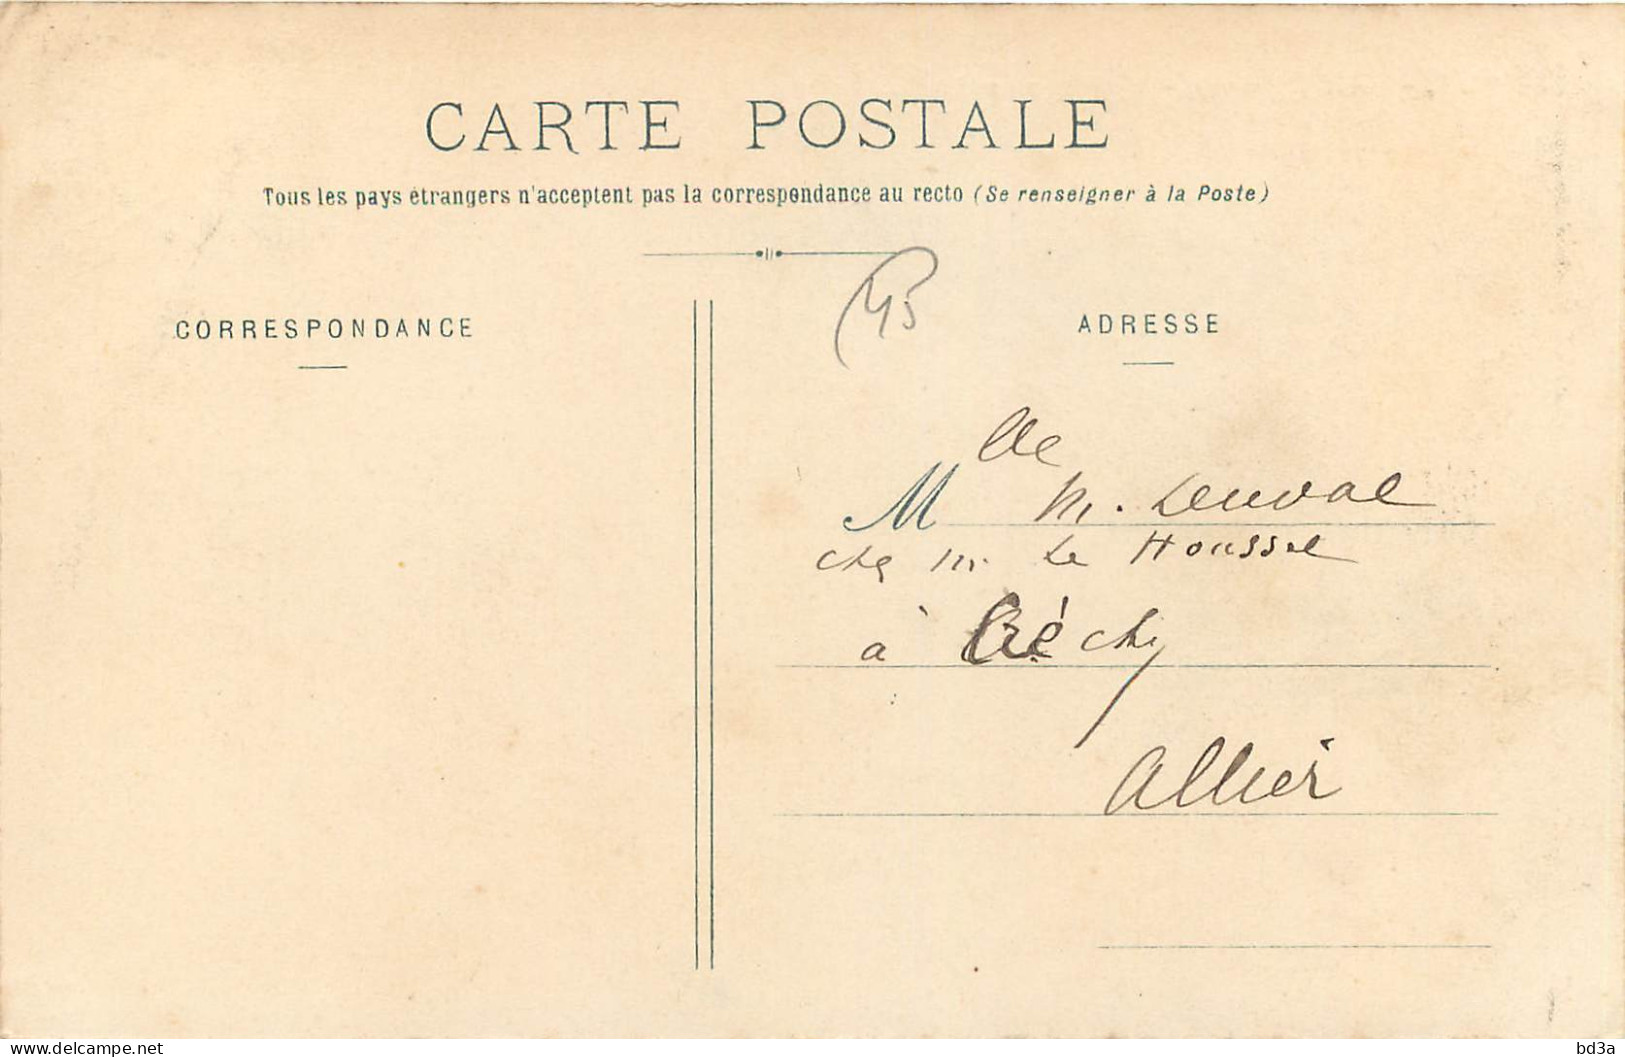 CARTE POSTALE
Tous les pays étrangers n'acceptent pas la correspondance au recto (Se renseigner à la Poste)
45
CORRESPONDANCE
ADRESSE
lle
M M. Leuval
chez M. Le Houssel
à Créchy
Allier
www.delcampe.net
bd3a